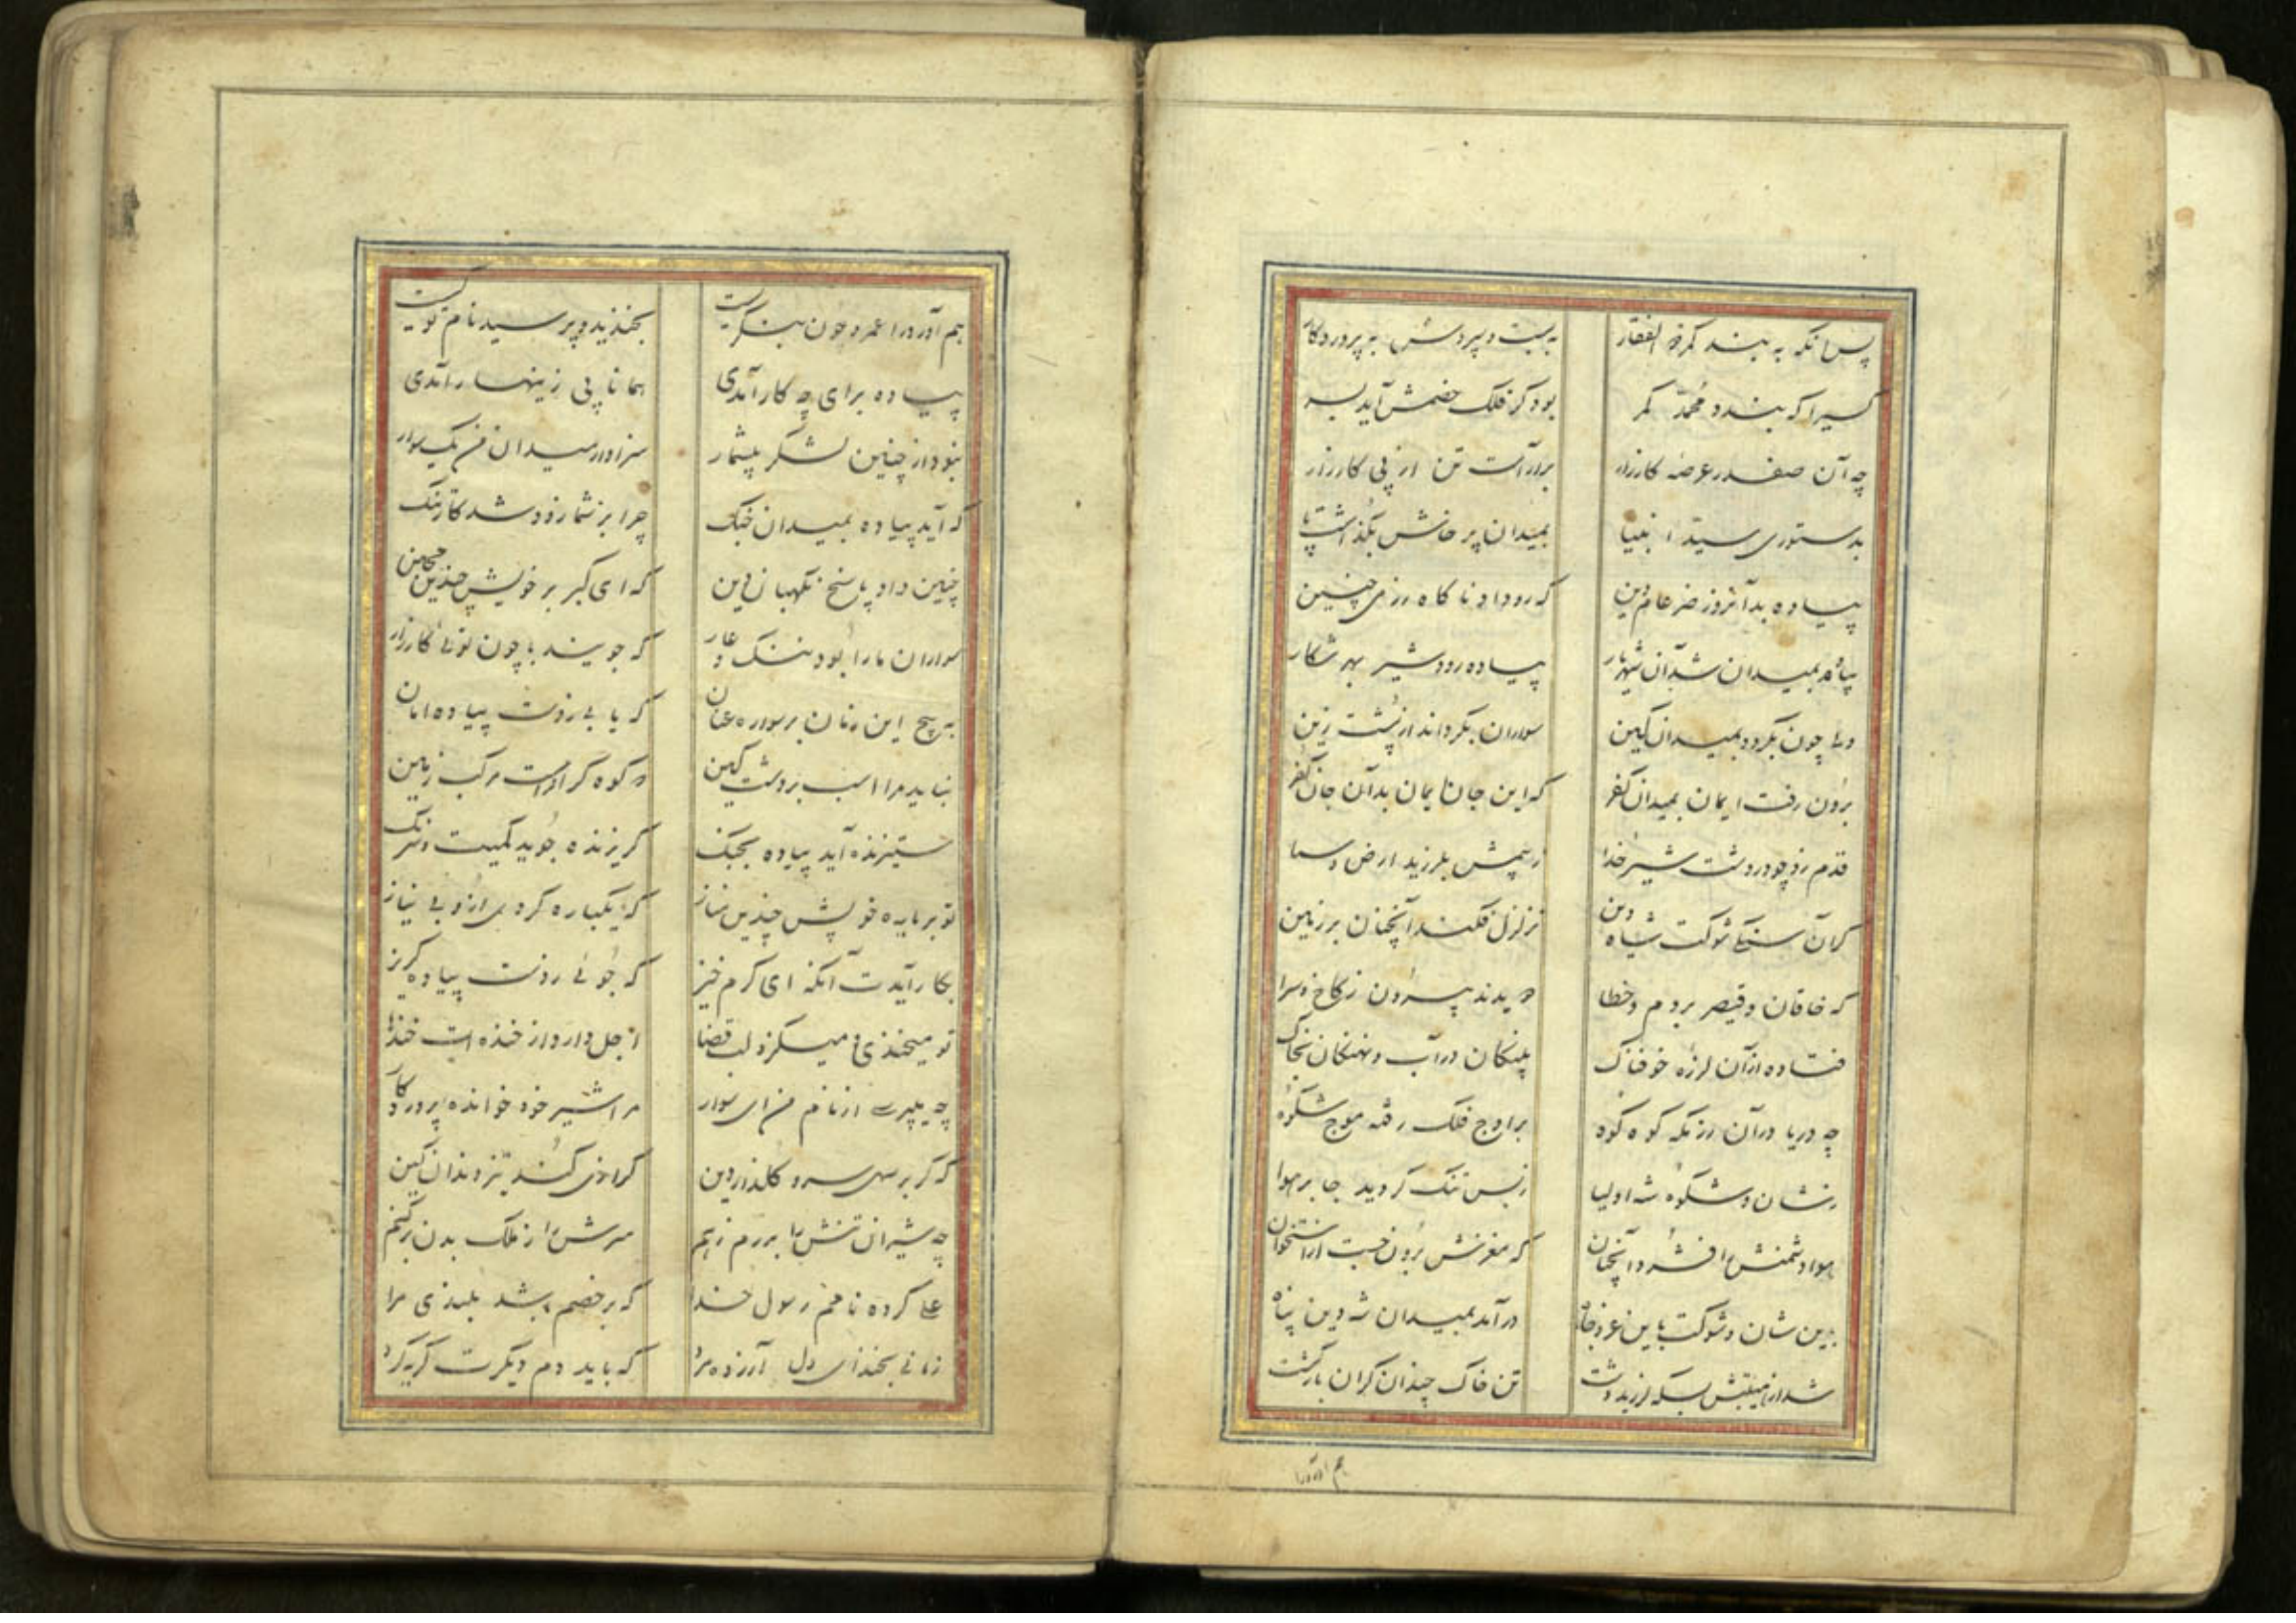 پس آنکه به بند کمر ذوالفقار به بست و سپردش به پروردکار
کسیرا که بندد محمد کمر بود کر فلک خصمش آید بسر
چه آن صفدر عرصه کارزار برآراست تن از پی کارزار
بدستوری سید انبیا بمیدان پرخاش بگذاشت پا
پیاده بدانروز ضرغام دین که رو داد ناکاه رزمی چنین
پیاده بمیدان شد آن شهریار پیاده رود شیر بهر شکار
ولی چون بگردد بمیدان کین سواران بگرداند از پشت زین
برون رفت ایمان بمیدان کفر که این جان ایمان بد آن جان کفر
قدم زد چو در دشت شیر خدا ز سهمش بلرزید ارض و سما
کران سنکی شوکت شاه دین تزلزل فکند آنچنان بر زمین
که خاقان و قیصر بروم و خطا دویدند بیرون ز کاخ و سرا
فتاده از آن لرزه خوفناک پلنکان در آب و نهنکان بخاک
چه دریا در آن رزمکه کوه کوه بر اوج فلک رفته موج شکوه
ز شان و شکوه شه اولیا ز بس تنک کردید جا بر هوا
هوا دشمنش را فشرد آنچنان که مغزش برون جست از استخوان
بدین شان و شوکت باین عز و جاه درآمد بمیدان شه دین پناه
شد از هیبتش بسکه لرزید دشت تن خاک چندان کران بار کشت
هم آورد را
هم آورد را عمرو چون بنگریست بخندید و پرسید نام تو کیست
پیاده برای چه کار آمدی همانا پی زینهار آمدی
نبود از چنین لشکر بیشمار سزاوار میدان من یک سوار
که آید پیاده بمیدان جنک چرا بر شما زود شد کار تنک
چنین داد پاسخ نکهبان دین که ای کبر بر خویش چندین مچین
سواران ما را بود ننک و عار که جویند با چون توئی کارزار
به پیچ این زمان بر سواره عنان که یابی ز دست پیاده امان
نباید مرا اسب بر دشت کین
ستیزنده آید پیاده بجنک کریزنده جوید کمیت و خدنک
تو بر باره خویش چندین مناز که یکباره کردی ازو بی نیاز
بکار آیدت آنکه ای کرم خیز که جوئی ز دست پیاده کریز
تو میخندی و میکزد لب قضا اجل دارد از خنده ات خندها
چه میپرسی از نام من ای سوار مرا شیر خود خوانده پروردکار
که کر بر سهی سرو کلزار دین کرازی کند تیز دندان کین
چه شیران تنش را بدرم ز هم سرش را ز ملک بدن برکنم
علی کرده نامم رسول خدا که بر خصم باشد بلندی مرا
زمانی بخند ای دل آزرده مرد که باید دم دیکرت کریه کرد